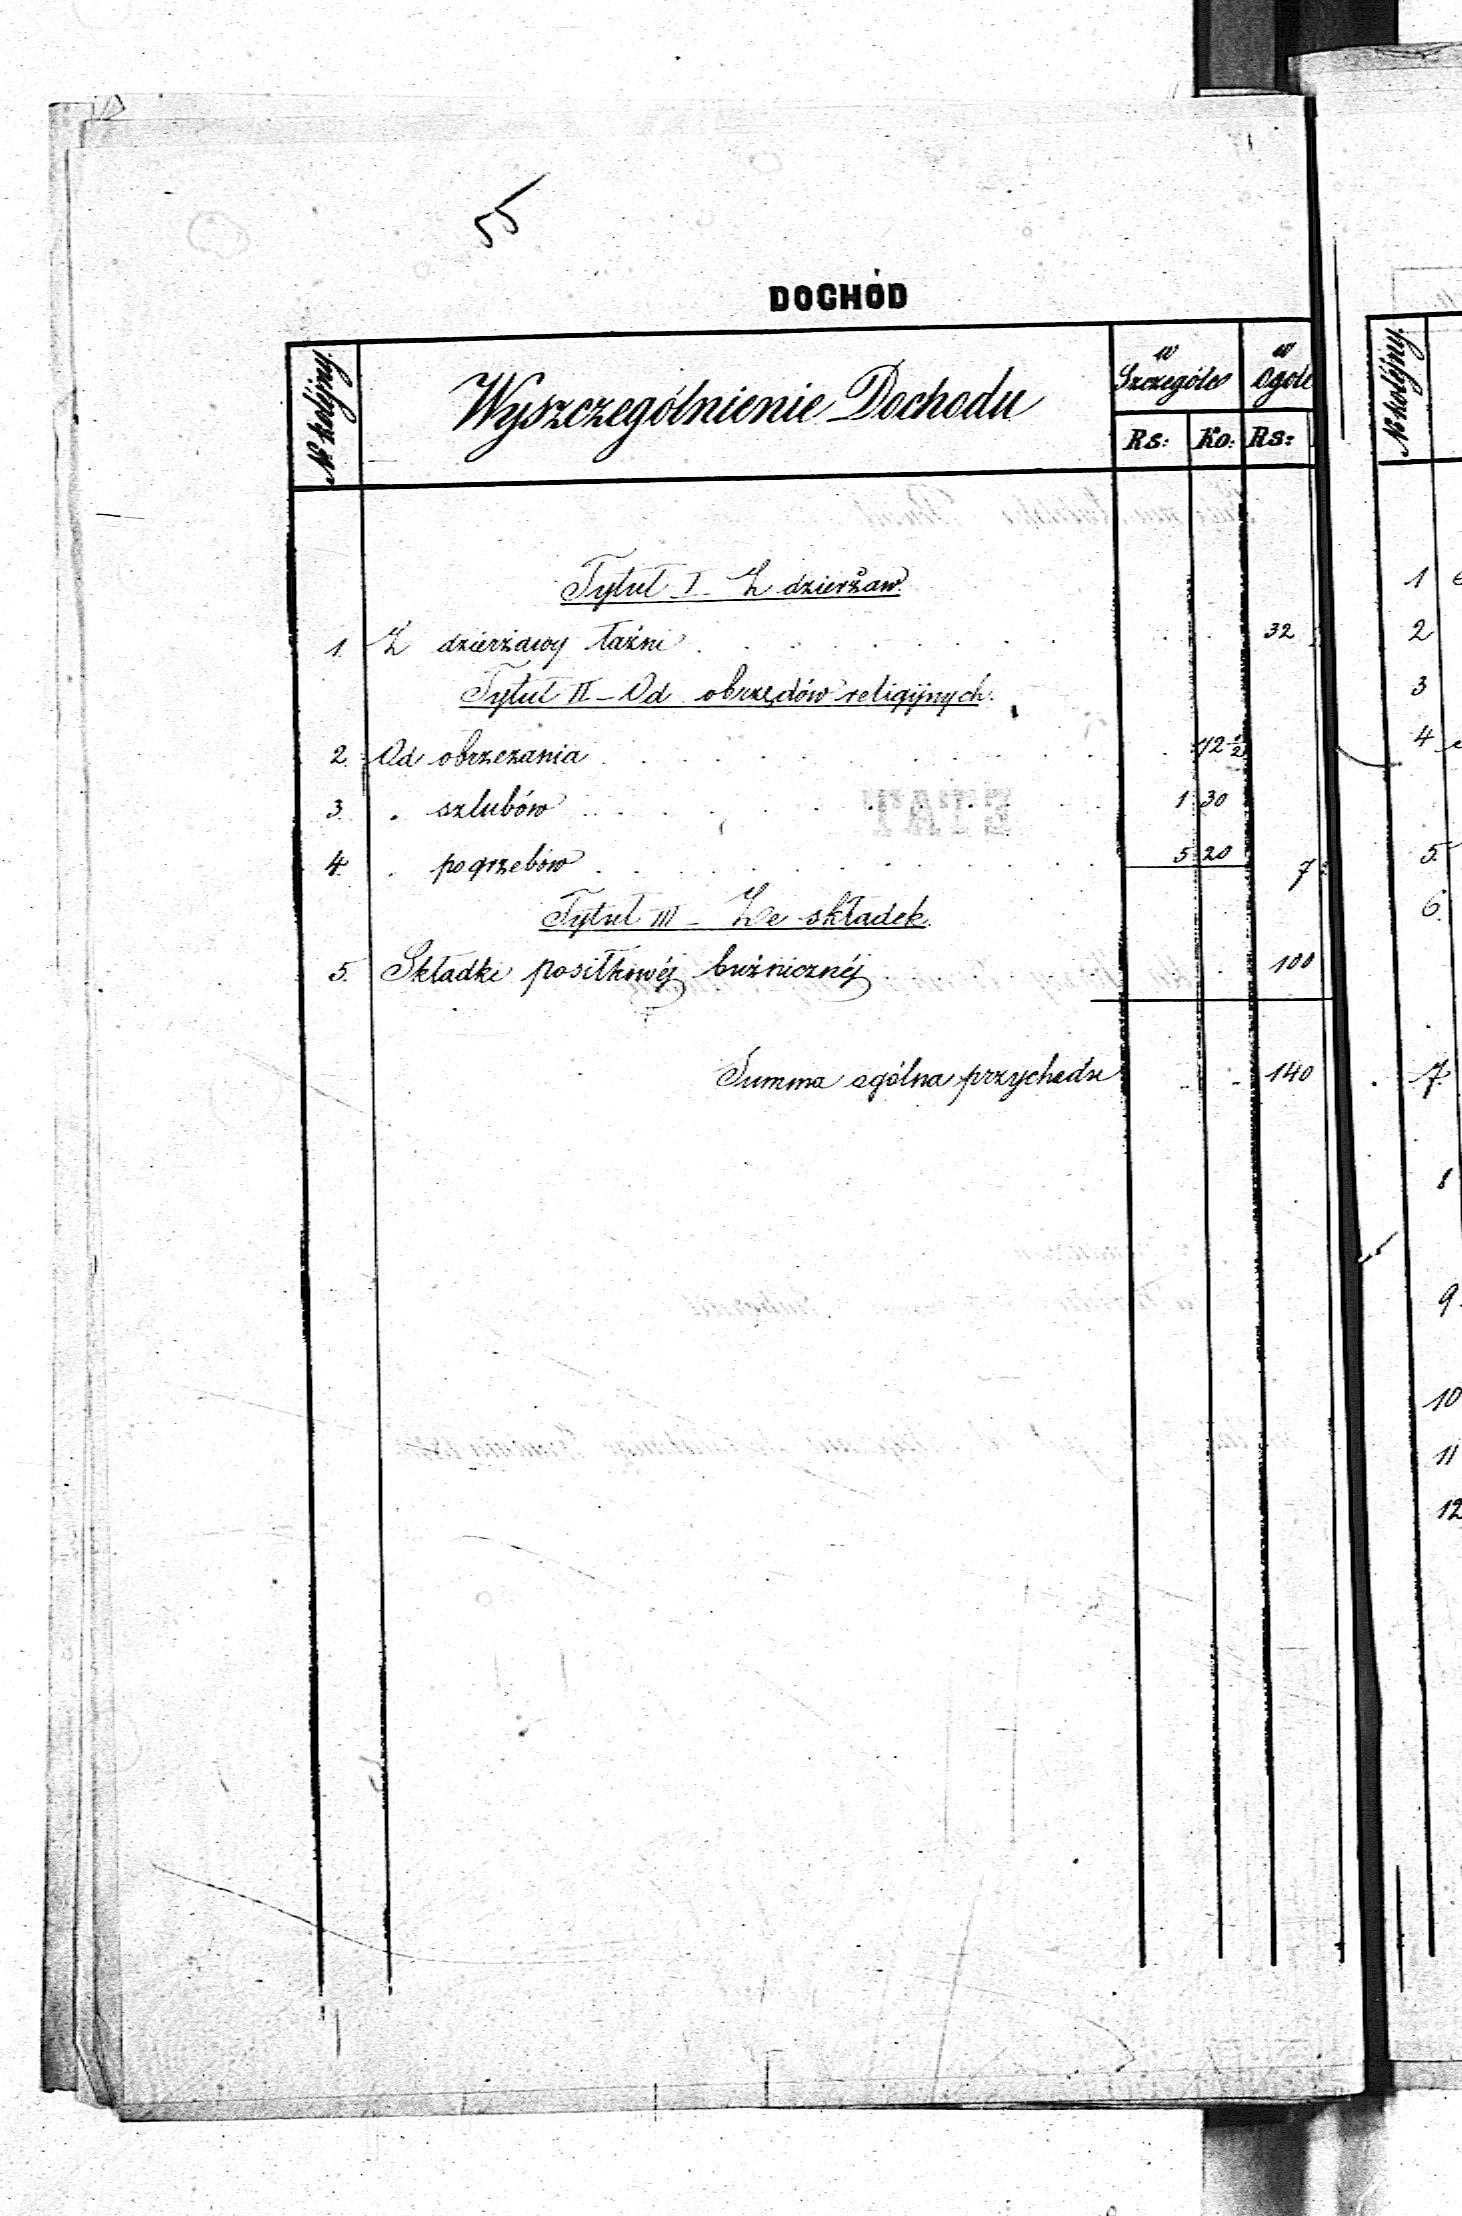 55
DOCHÓD
№ kolejny.
Wyszczególnienie Dochodu
w Szczególe
w Ogóle
Rs: Ko: Rs:
№ kolejny.
Tytuł I - Z dzierżaw.
1. Z dzierżawy łaźni . . . . . . . 32
Tytuł II - Od obrzędów religijnych.
2. Od obrzezania . . . . . . . . 12 1/2
3. " szlubów . . . . . . . . 1 30
4. " pogrzebów . . . . . . . . 5 20 7
Tytuł III - Ze składek.
5. Składki posiłkowéj buźnicznéj . . 100
Summa ogólna przychodu . . 140
STAT
1
2
3
4
5.
6.
7.
8
9.
10
11
12